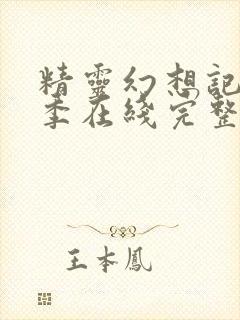 精靈幻想記
季在綫完整
王本鳳